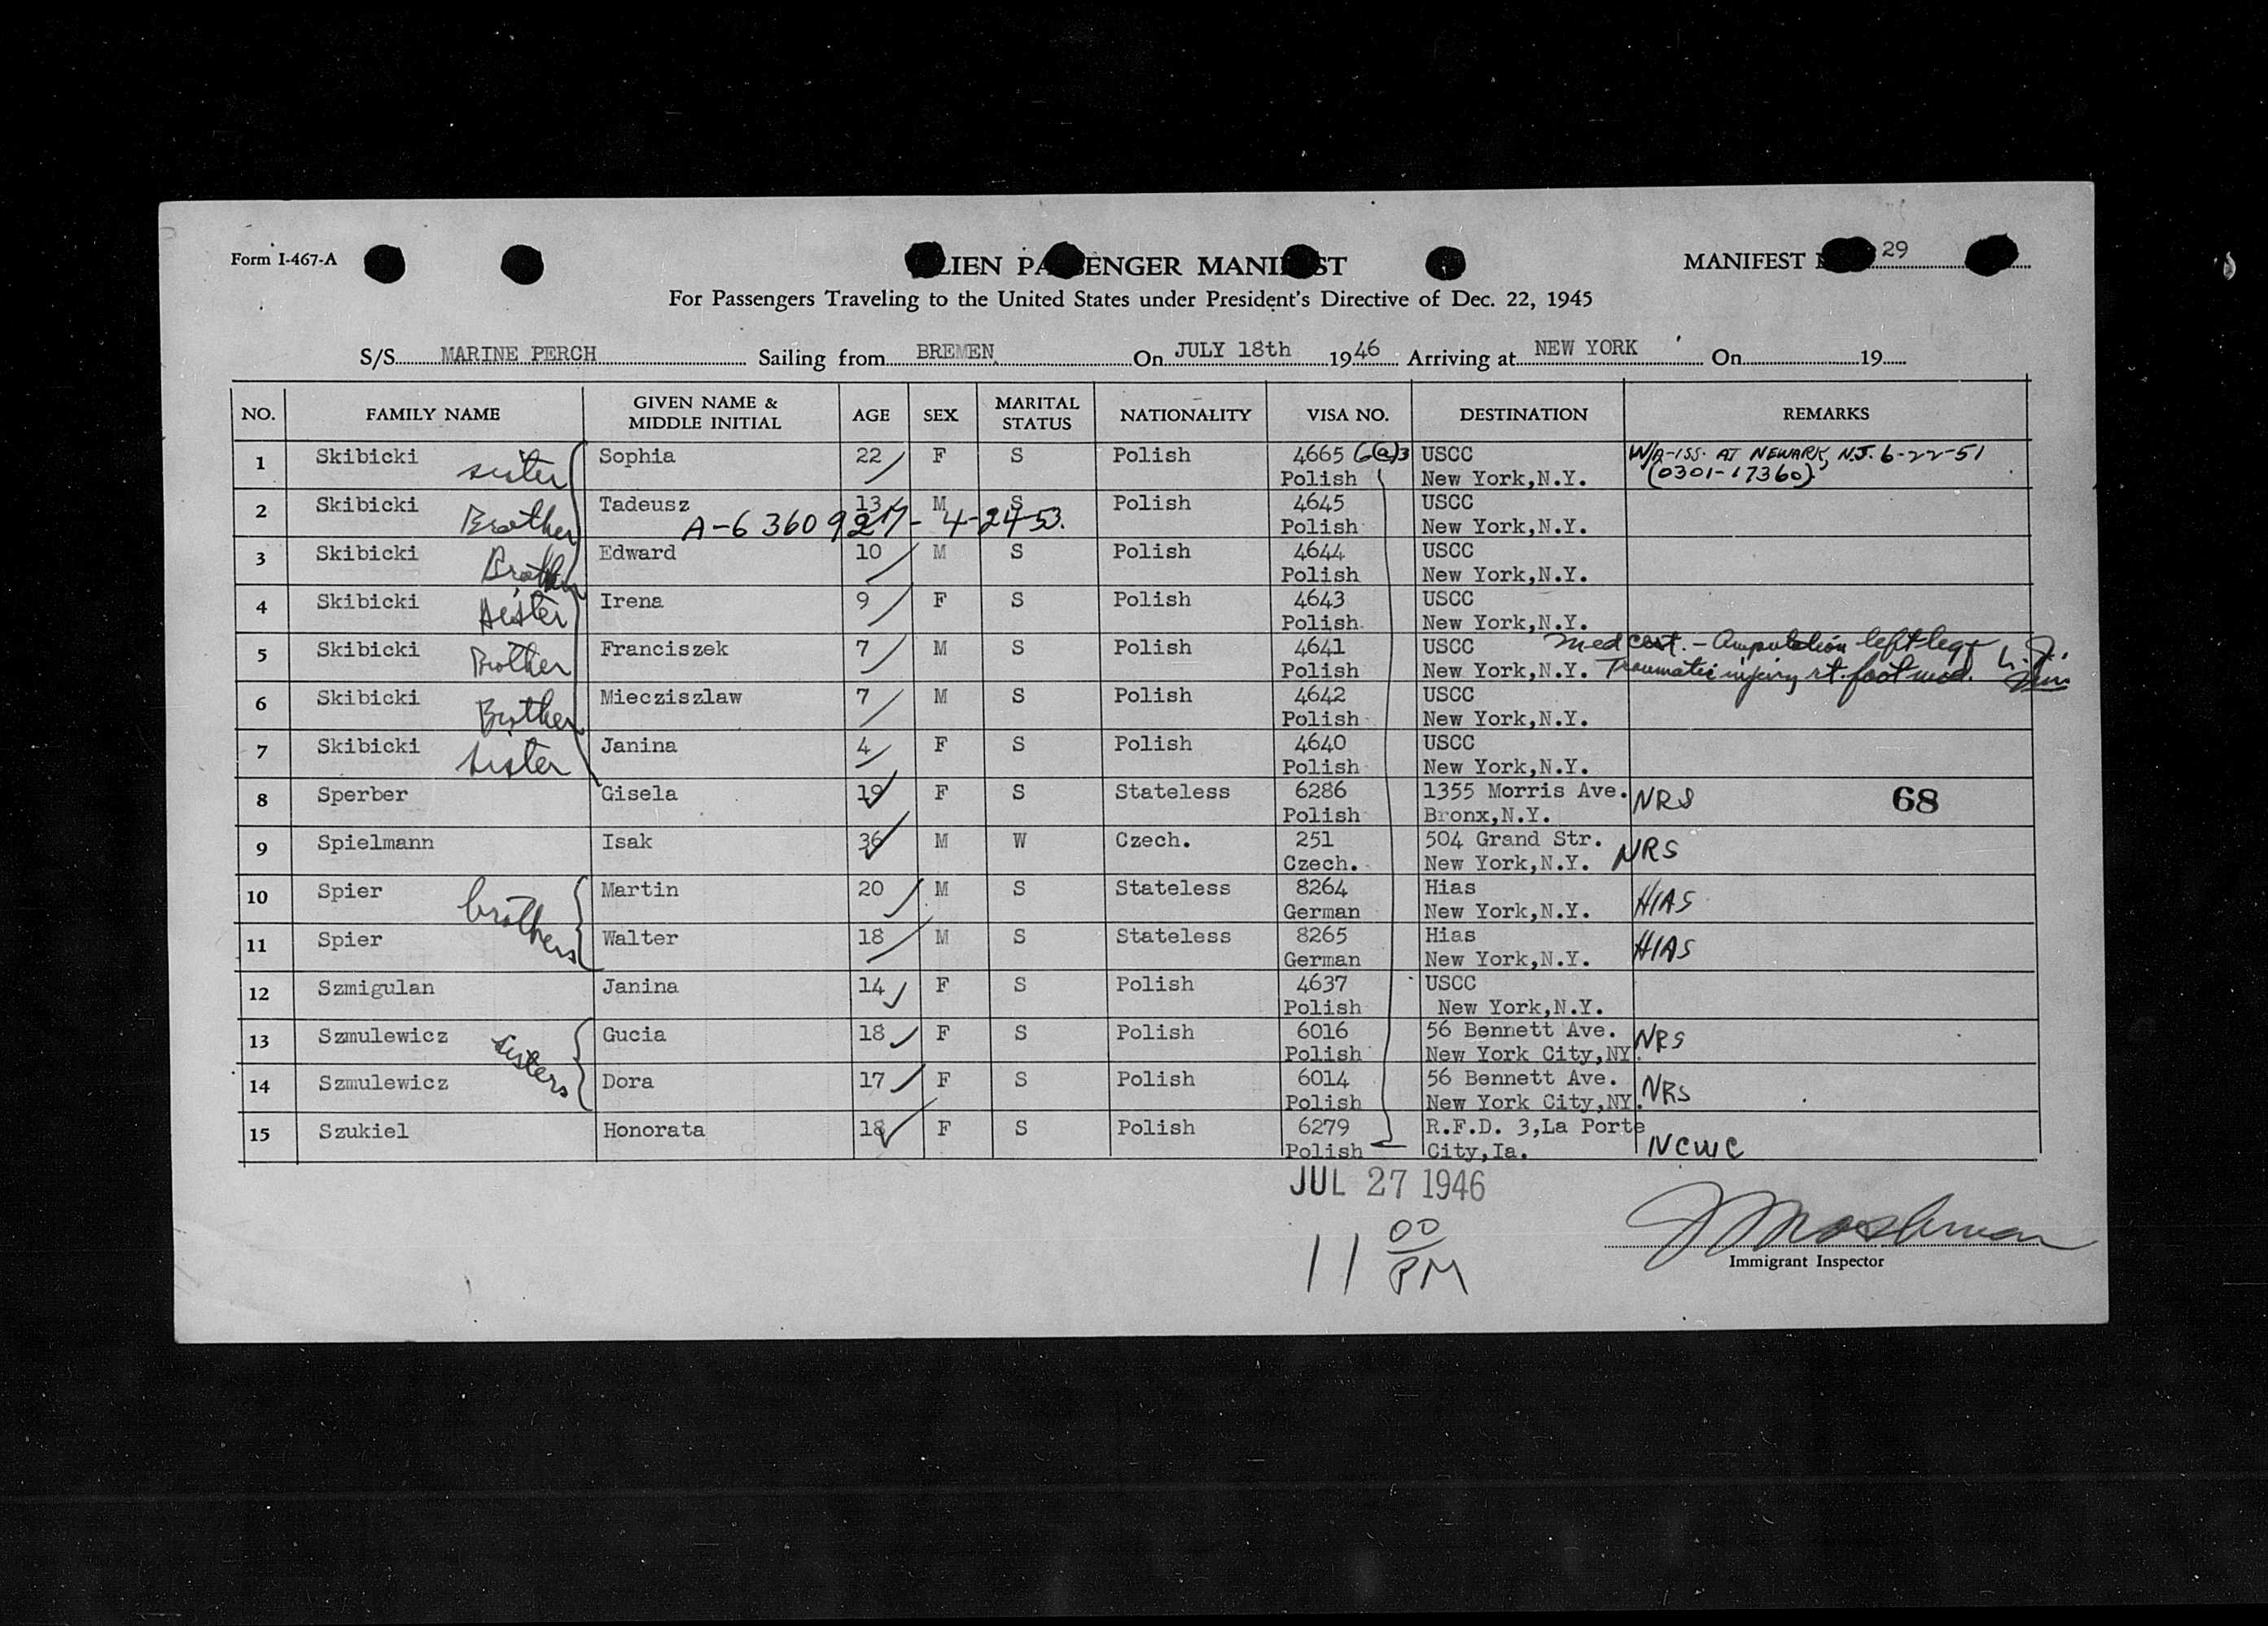 Form I-467-A
LIEN PA ENGER MANI ST
MANIFEST 29
For Passengers Traveling to the United States under President's Directive of Dec. 22, 1945
S/S MARINE PERCH Sailing from BREMEN On JULY 18th 1946 Arriving at NEW YORK On 19
NO. FAMILY NAME GIVEN NAME & MIDDLE INITIAL AGE SEX MARITAL STATUS NATIONALITY VISA NO. DESTINATION REMARKS
1 Skibicki sister Sophia 22 F S Polish 4665 6(a)3 USCC W/A-ISS. AT NEWARK, N.J. 6-22-51
Polish New York,N.Y. (0301-17360)
2 Skibicki Brother Tadeusz 13 M S Polish 4645 USCC
A-6 360 927 - 4-24-53. Polish New York,N.Y.
3 Skibicki Brother Edward 10 M S Polish 4644 USCC
Polish New York,N.Y.
4 Skibicki Sister Irena 9 F S Polish 4643 USCC
Polish New York,N.Y.
5 Skibicki Brother Franciszek 7 M S Polish 4641 USCC Med cert. - Amputation left leg
Polish New York,N.Y. Traumatic injury rt. foot mod.
6 Skibicki Brother Miecziszlaw 7 M S Polish 4642 USCC
Polish New York,N.Y.
7 Skibicki Sister Janina 4 F S Polish 4640 USCC
Polish New York,N.Y.
8 Sperber Gisela 19 F S Stateless 6286 1355 Morris Ave. NRS 68
Polish Bronx,N.Y.
9 Spielmann Isak 36 M W Czech. 251 504 Grand Str. NRS
Czech. New York,N.Y.
10 Spier brothers Martin 20 M S Stateless 8264 Hias HIAS
German New York,N.Y.
11 Spier Walter 18 M S Stateless 8265 Hias HIAS
German New York,N.Y.
12 Szmigulan Janina 14 F S Polish 4637 USCC
Polish New York,N.Y.
13 Szmulewicz sisters Gucia 18 F S Polish 6016 56 Bennett Ave. NRS
Polish New York City,NY.
14 Szmulewicz Dora 17 F S Polish 6014 56 Bennett Ave. NRS
Polish New York City,NY.
15 Szukiel Honorata 18 F S Polish 6279 R.F.D. 3,La Porte NCWC
Polish City,Ia.
JUL 27 1946
11 00 PM
Immigrant Inspector